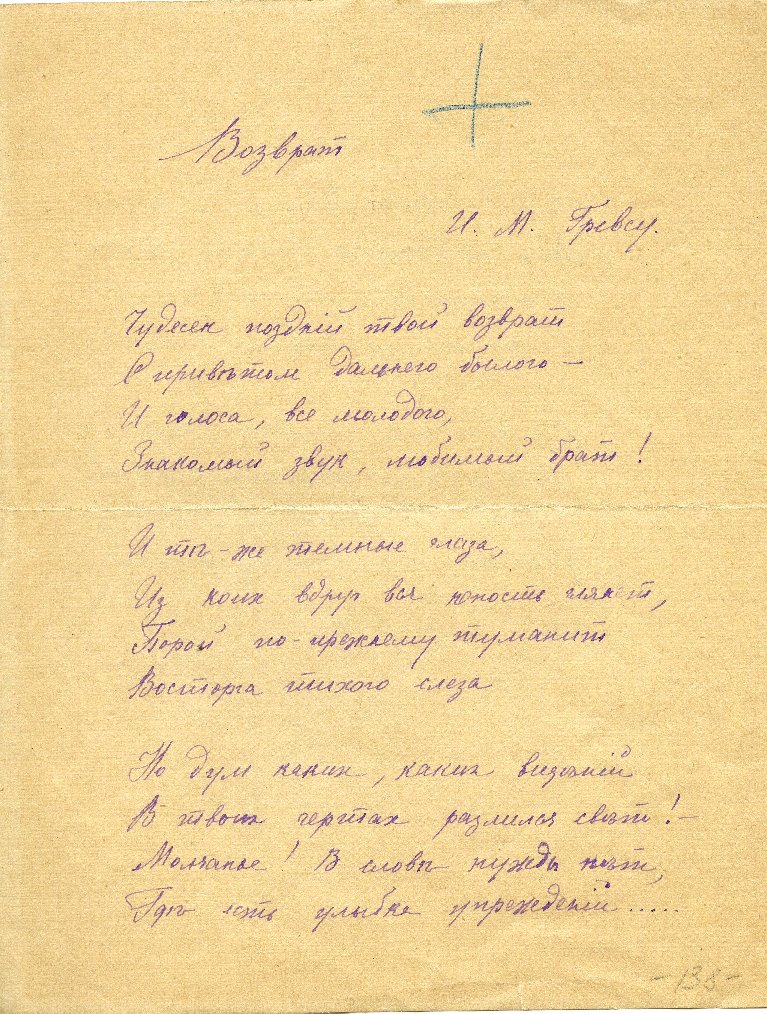 Возврат
И. М. Гревсу.
Чудесен поздній твой возврат
С привѣтом дальнего былого —
И голоса, все молодого,
Знакомый звук, любимый брат!
И тѣ-же темные глаза,
Из коих вдруг вся юность глянет,
Порой по-прежнему туманит
Восторга тихого слеза
Но дум каких, каких видѣній
В твоих чертах разлился свѣт! —
Молчанье! В словѣ нужды нѣт,
Гдѣ есть улыбка упрежденій.....
-138-